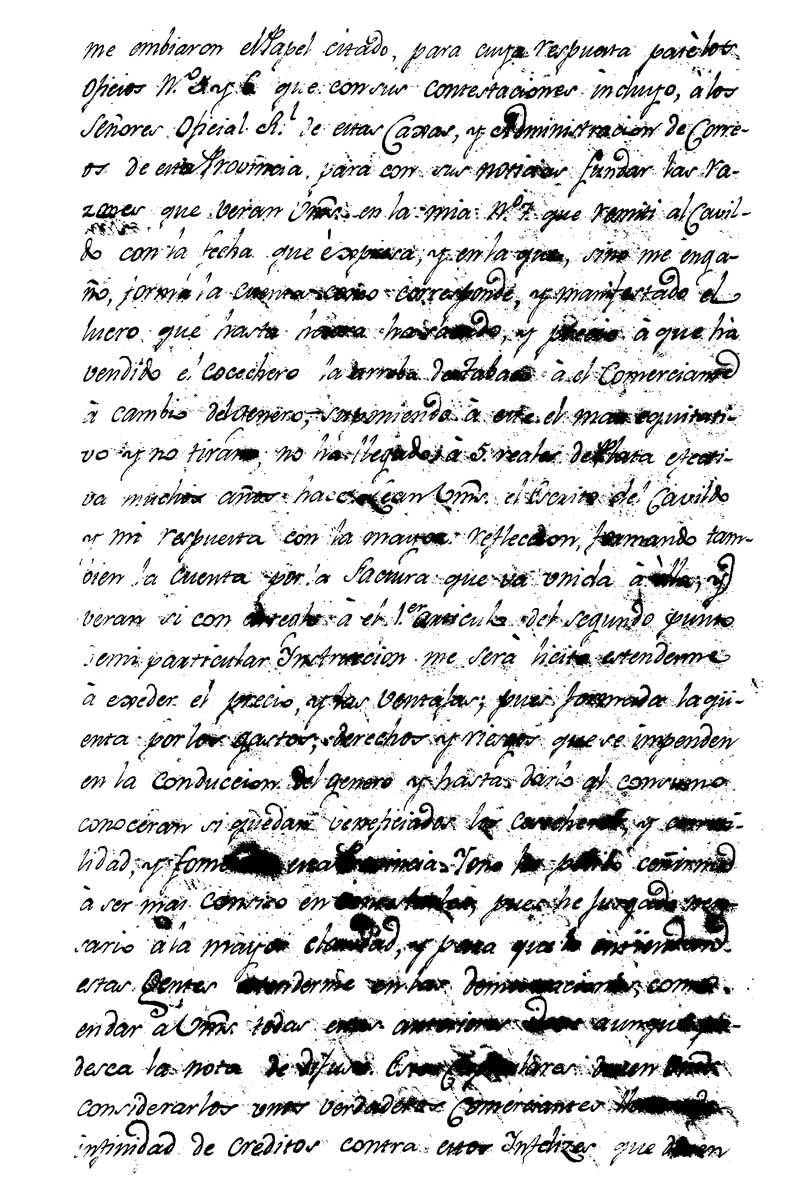 me embiaron el Papel citado, para cuya respuesta pasè los
Oficios N.º 5 y 6 que con sus contestaciones incluyo, à los
Señores Oficial R.l de estas Caxas, y Administracion de Corre-
os de esta Provincia, para con sus noticias fundar las ra-
zones que veran Vms. en la mia N.º 7. que remiti al Cavil-
do con la fecha que èxpresa, y en la que, sino me enga-
ño, formè la cuenta como corresponde, y manifestado el
lucro que hasta haora ha sacado, y precio à que hà
vendido el Cocechero la arroba de Tabaco à el Comerciante
à cambio del Genero, suponiendo à este el mas equitati-
vo y no tirano, no hà llegado à 5 reales de Plata efecti-
va muchos años hace. Lean Vms. el Escrito del Cavildo
y mi respuesta con la mayor refleccion, formando tam-
bien la cuenta por la Factura que va unida à èlla, y
veran si con arreglo à el 1.er articulo del segundo punto
demi particular Instruccion me serà licito estenderme
à exceder el precio, y las ventajas; pues formada la qü-
enta por los gastos, derechos y riesgos que se impenden
en la conduccion del genero y hasta darlo al consumo
conoceran si quedan beneficiados los Cosecheros, y
lidad, y fome esta Provincia. Yo no he podido ceñirme
à ser mas Consiso en contestarles, pues he Juzgado nece-
sario à la mayor claridad, y para que lo entiendan
estas Gentes estenderme en las demostraciones, como
en dar à Vms. todas estas anteriores aunque pa-
desca la nota de difuso. Estos Capitulares deven
considerarlos unos verdaderos Comerciantes
infinidad de Creditos contra estos Infelizes que deven